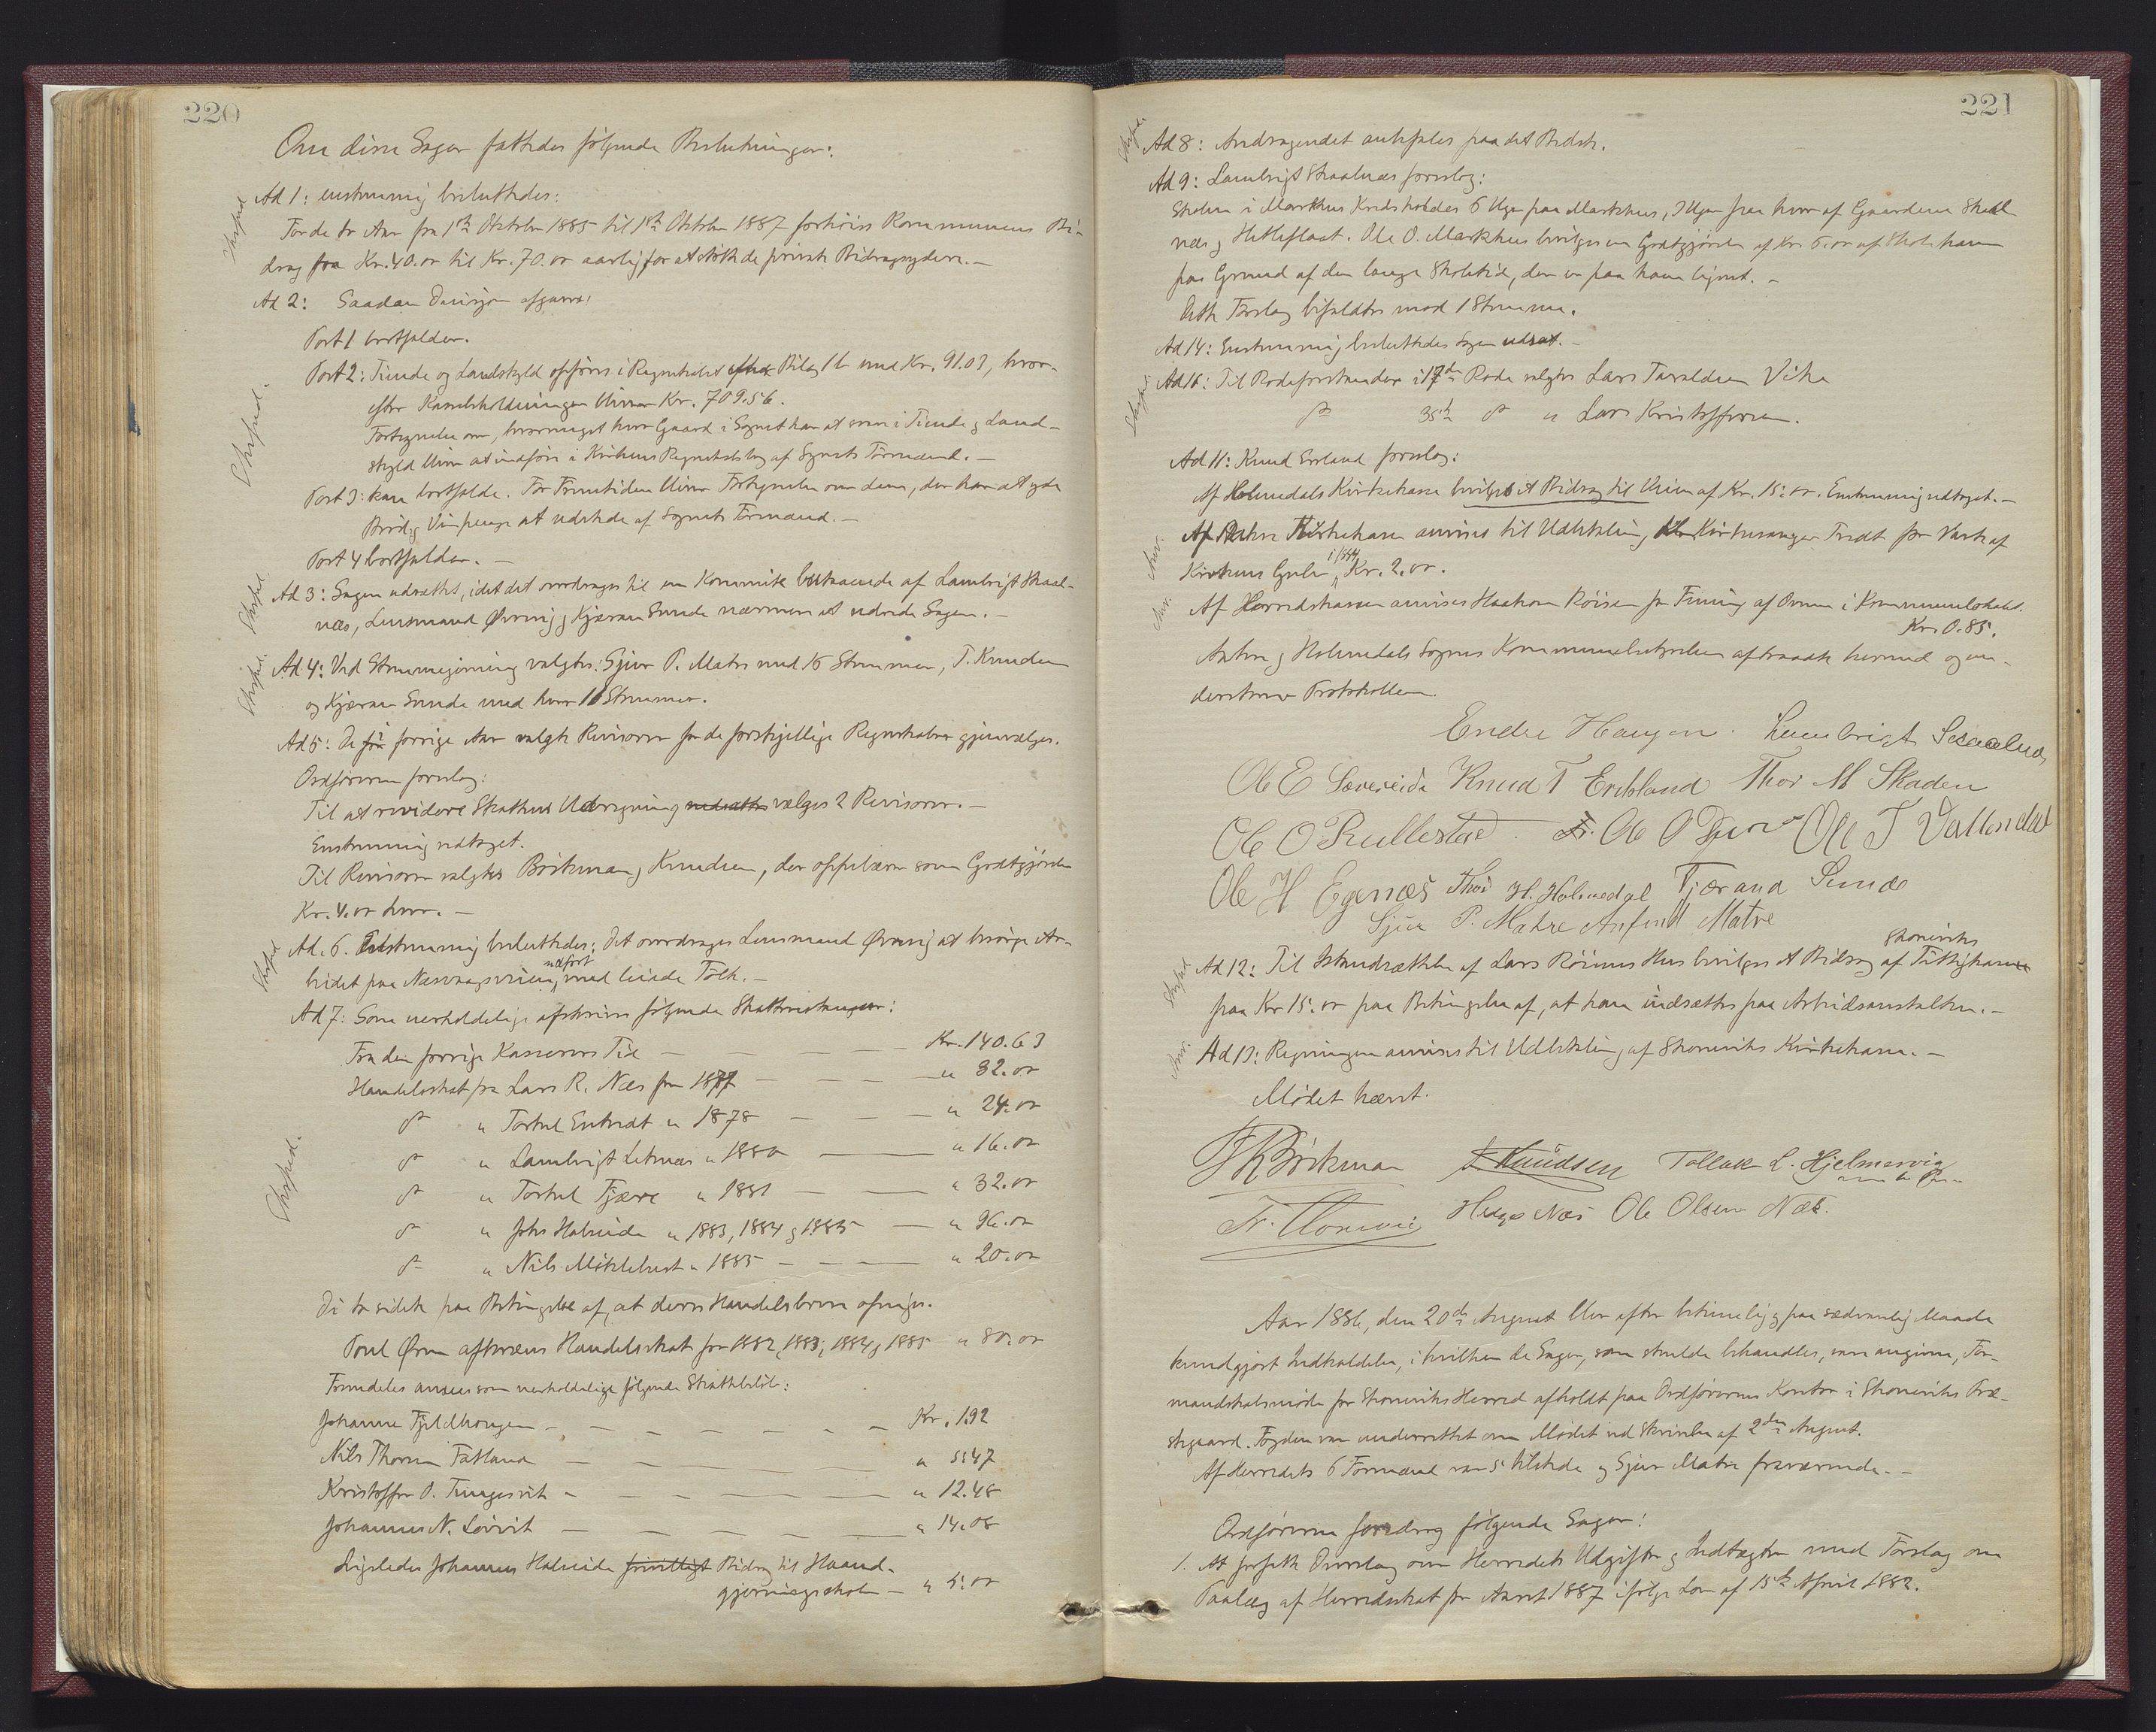 220
Om disse Sager fattedes følgende Beslutninger:
Exsped
Ad 1: enstemmig besluttedes:
For de to Aar fra 1ste Oktober 1885 til 1ste Oktober 1887 forhøies Kommunens Bi-
drag fra Kr. 40.00 til Kr. 70.00 aarlig for at støtte de private Bidragsydere.—
Ad 2: Saadan Decision afgaves:
Post 1 bortfalder.
Exsped.
Post 2: Tiende og Landskyld opføres i Regnskabet efter Bilag 1b med Kr. 91.03, hvor-
efter Kassebeholdningen bliver Kr. 709.56.
Fortegnelse om, hvormeget hver Gaard i Sognet har at svare i Tiende og Land-
skyld bliver at indføre i Kirkens Regnskabsbog af Sognets Formænd.—
Post 3: kan bortfalde. For Fremtiden bliver Fortegnelse om dem, der har at yde
Brød og Vinpenge at udstede af Sognets Formænd.—
Post 4 bortfalder.—
Exsped.
Ad 3: Sagen udsættes, idet det overdrages til en Kommite bestaaende af Lambrigt Skaal-
næs, Lensmand Ørevig og Kjæran Sunde nærmere at udrede Sagen.—
Exsped.
Ad 4: Ved Stemmegivning valgtes: Sjur P. Matre med 15 Stemmer, T. Knudsen
og Kjæran Sunde med hver 10 Stemmer.
Ad 5: De i forrige Aar valgte Revisorer for de forskjellige Regnskaber gjenvælges.
Ordføreren foreslog:
Til at revidere Skattens Udregning nedsættes vælges 2 Revisorer.—
Enstemmig vedtaget.
Til Revisorer valgtes Börkman og Knudsen, der oppebærer som Godtgjørelse
Kr. 4.00 hver.—
Exsped
Ad. 6. Enstemmig besluttedes: Det overdrages Lensmand Ørevig at besørge Ar-
beidet paa Næsvaagsveien udført med leiede Folk.—
Ad 7: Som uerholdelige afskrives følgende Skatterestancer:
Fra den forrige Kasserers Tid — Kr. 140.63
Handelsskat fra Lars R. Næs for 1877 — " 32.00
do " Torkel Entredt " 1878 — " 24.00
do " Lambrigt Letnæs " 1880 — " 16.00
Exsped.
do " Torkel Fjære " 1881 — " 32.00
do " Johs Halseide " 1883, 1884 og 1885 — " 96.00
do " Nils Miklebust " 1885 — " 20.00
De to sidste paa Betingelse af, at deres Handelsbreve opsiges.
Poul Ørn afskrives Handelsskat for 1882, 1883, 1884 og 1885 " 80.00
Fremdeles ansees som uerholdelige følgende Skattebeløb:
Johanne Fjeldhaugen — Kr. 1.92
Nils Thorsen Fatland — " 5.47
Kristoffer O. Tungesvik — " 12.48
Johannes N. Løvvik — " 14.08
Ligeledes Johannes Halseide frivilligt Bidrag til Haand-
gjerningsskolen — " 5.00
221
Exsped
Ad 8: Andragendet anbefales paa det Bedste.
Ad 9: Lambrigt Skaalnæs foreslog:
Skolen i Markhus Kreds holdes 6 Uger paa Markhus, 3 Uger paa hver af Gaardene Skaal
næs og Hetleflaat. Ole O. Markhus bevilges en Godtgjørelse af Kr. 6.00 af Skolekassen
paa Grund af den lange Skoletid, der er paa ham lignet.—
Dette Forslag bifaldtes mod 1 Stemme.
Ad 14: Enstemmig besluttedes Sagen udsat.—
Exsped
Ad 15: Til Rodeforstander i 17de Rode valgtes Lars Taraldsen Vike
do 35te do " Lars Kristoffersen.
Ad 11: Knud Ersland foreslog:
Af Holmedals Kirkekasse bevilges et Bidrag til Veien af Kr. 15.00. Enstemmig vedtaget.—
Anv.
Af Aakre Kirkekasse anvises til Udbetaling, til Kirkesanger Tvedt for Vask af
Kirkens Gulv i 1884 Kr. 2.00.
Anv.
Af Herredskassen anvises Haakon Røisen for Fyring af Ovnen i Kommunelokalet.
Kr. 0.85.
Aakre og Holmedals Sognes Kommunebestyrelsen aftraadte herved og un-
derskrev Protokollen.
Endre Haugen. Lambrigt Scaalnæs
Ole E Sævereide Knud T Ersland Thor M Skaden
Ole O Rullestad. Ole O Djuv Ole T Vallendal
Ole H Egenæs Thor H. Holmedal Tjærand Sunde
Sjur P. Matre Anfind Matre
Exsped
Ad 12: Til Istandsættelse af Lars Röiens Hus bevilges et Bidrag af Skoneviks Fattigkasse
paa Kr. 15.00 paa Betingelse af, at han indsættes paa Arbeidsanstalten.—
Anv.
Ad 13: Regningen anvises til Udbetaling af Skoneviks Kirkekasse.—
Mødet hævet.
Börkman T Knudsen Tollak L. Hjelmervig
Helge Næs Ole Olsen Næs.
Aar 1886, den 20de August blev efter betimelig og paa sædvanlig Maade
kundgjort Indkaldelse, i hvilken de Sager, som skulde behandles, vare angivne, For-
mandskabsmøde for Skoneviks Herred afholdt paa Ordførerens Kontor i Skoneviks Præ-
stegaard. Fogden var underrettet om Mødet ved Skrivelse af 2den August.
Af Herredets 6 Formænd var 5 tilstede og Sjur Matre fraværende.—
Ordføreren foredrog følgende Sager:
1. At forfatte Overslag over Herredets Udgifter og Indtægter med Forslag om
Paalæg af Herredsskat for Aaret 1887 ifølge Lov af 15de April 1882.